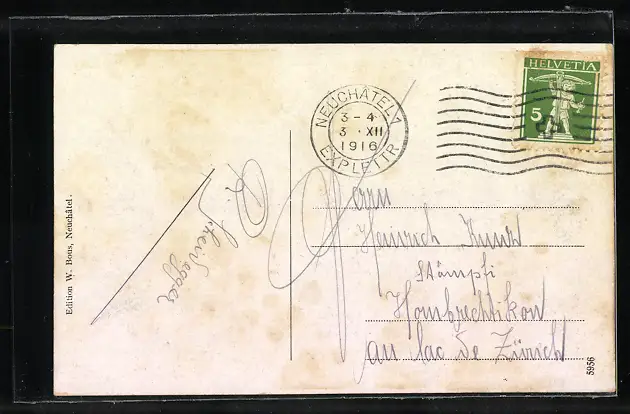 HELVETIA
5
NEUCHÂTEL 1
3-4
3 · XII
1916
EXP. LETTR.
Herrn
Heinrich Kunz
Stämpfi
Hombrechtikon
au lac de Zürich
R. Scheidegger
Edition W. Bous, Neuchâtel.
5956